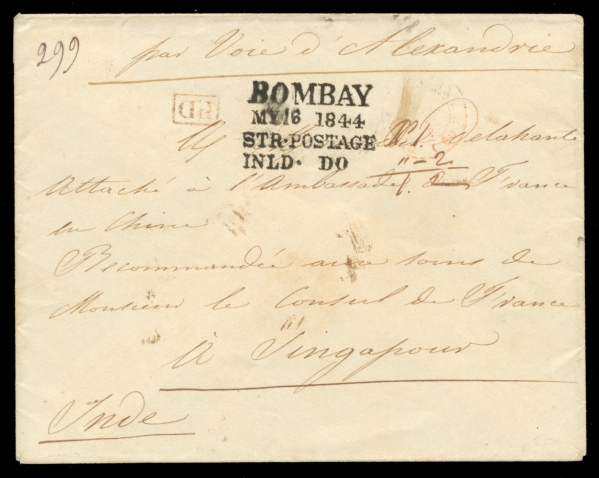 299
par Voie d'Alexandrie
PD
BOMBAY
MY 16 1844
STR·POSTAGE
INLD· DO
M Delahante
"-2
Attaché à l'Ambassade de France
en Chine
Recommandée aux soins de
Monsieur le Consul de France
à Singapour
Inde